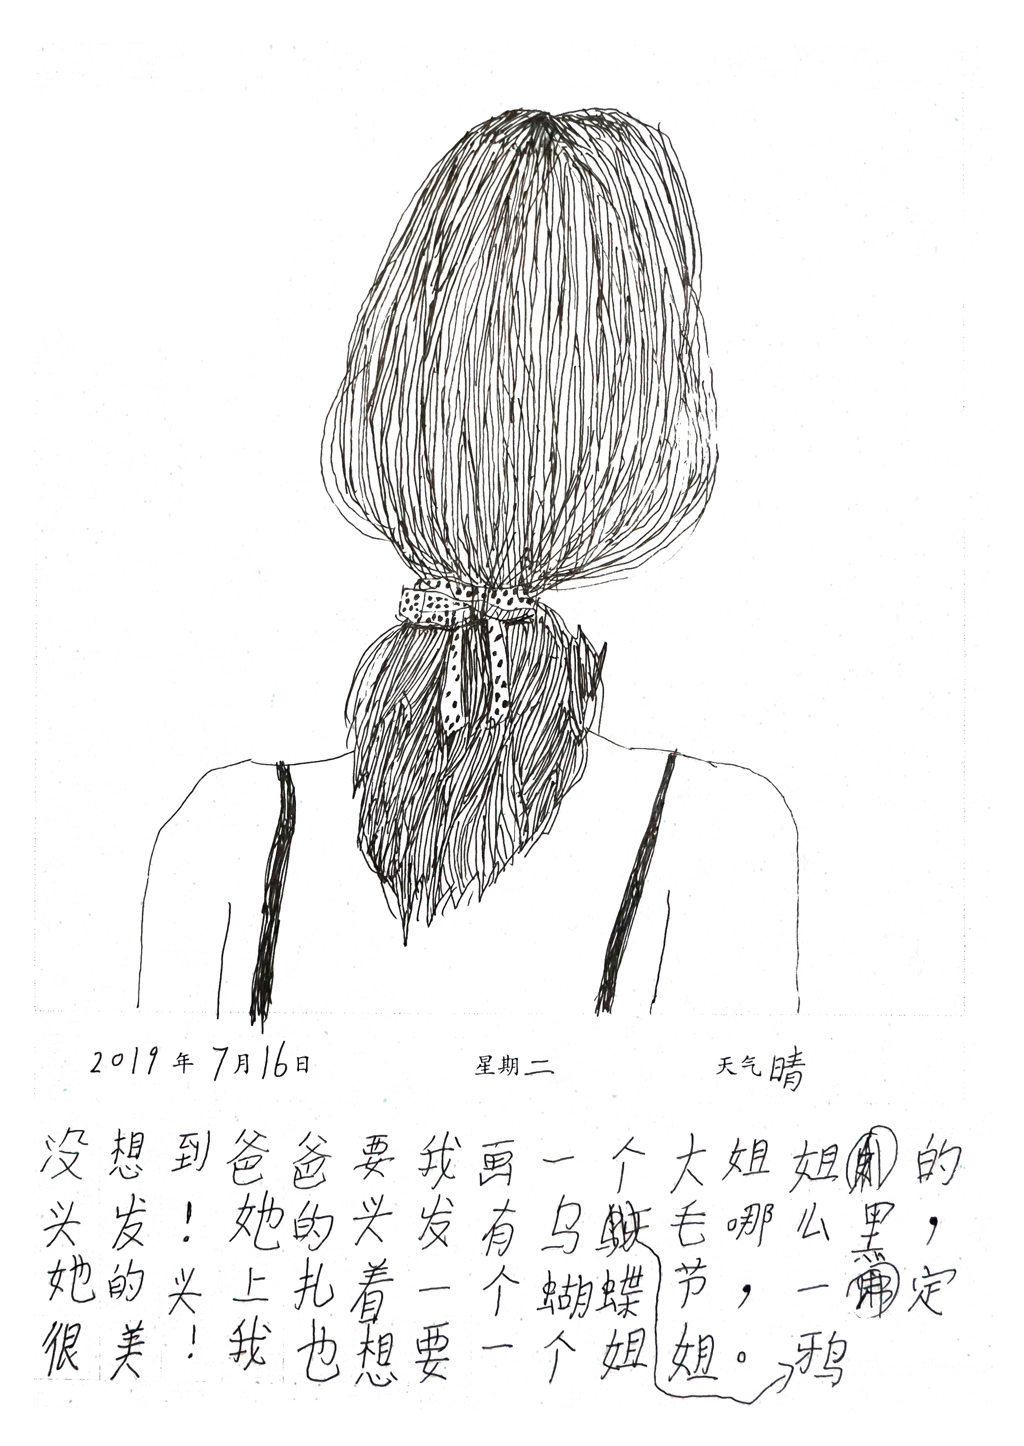 2019年7月16日 星期二 天气晴
没想到爸爸要我画一个大姐姐的
头发！她的头发有乌毛哪么黑，
她的头上扎着一个蝴蝶节，一定
很美！我也想要一个姐姐。鸦